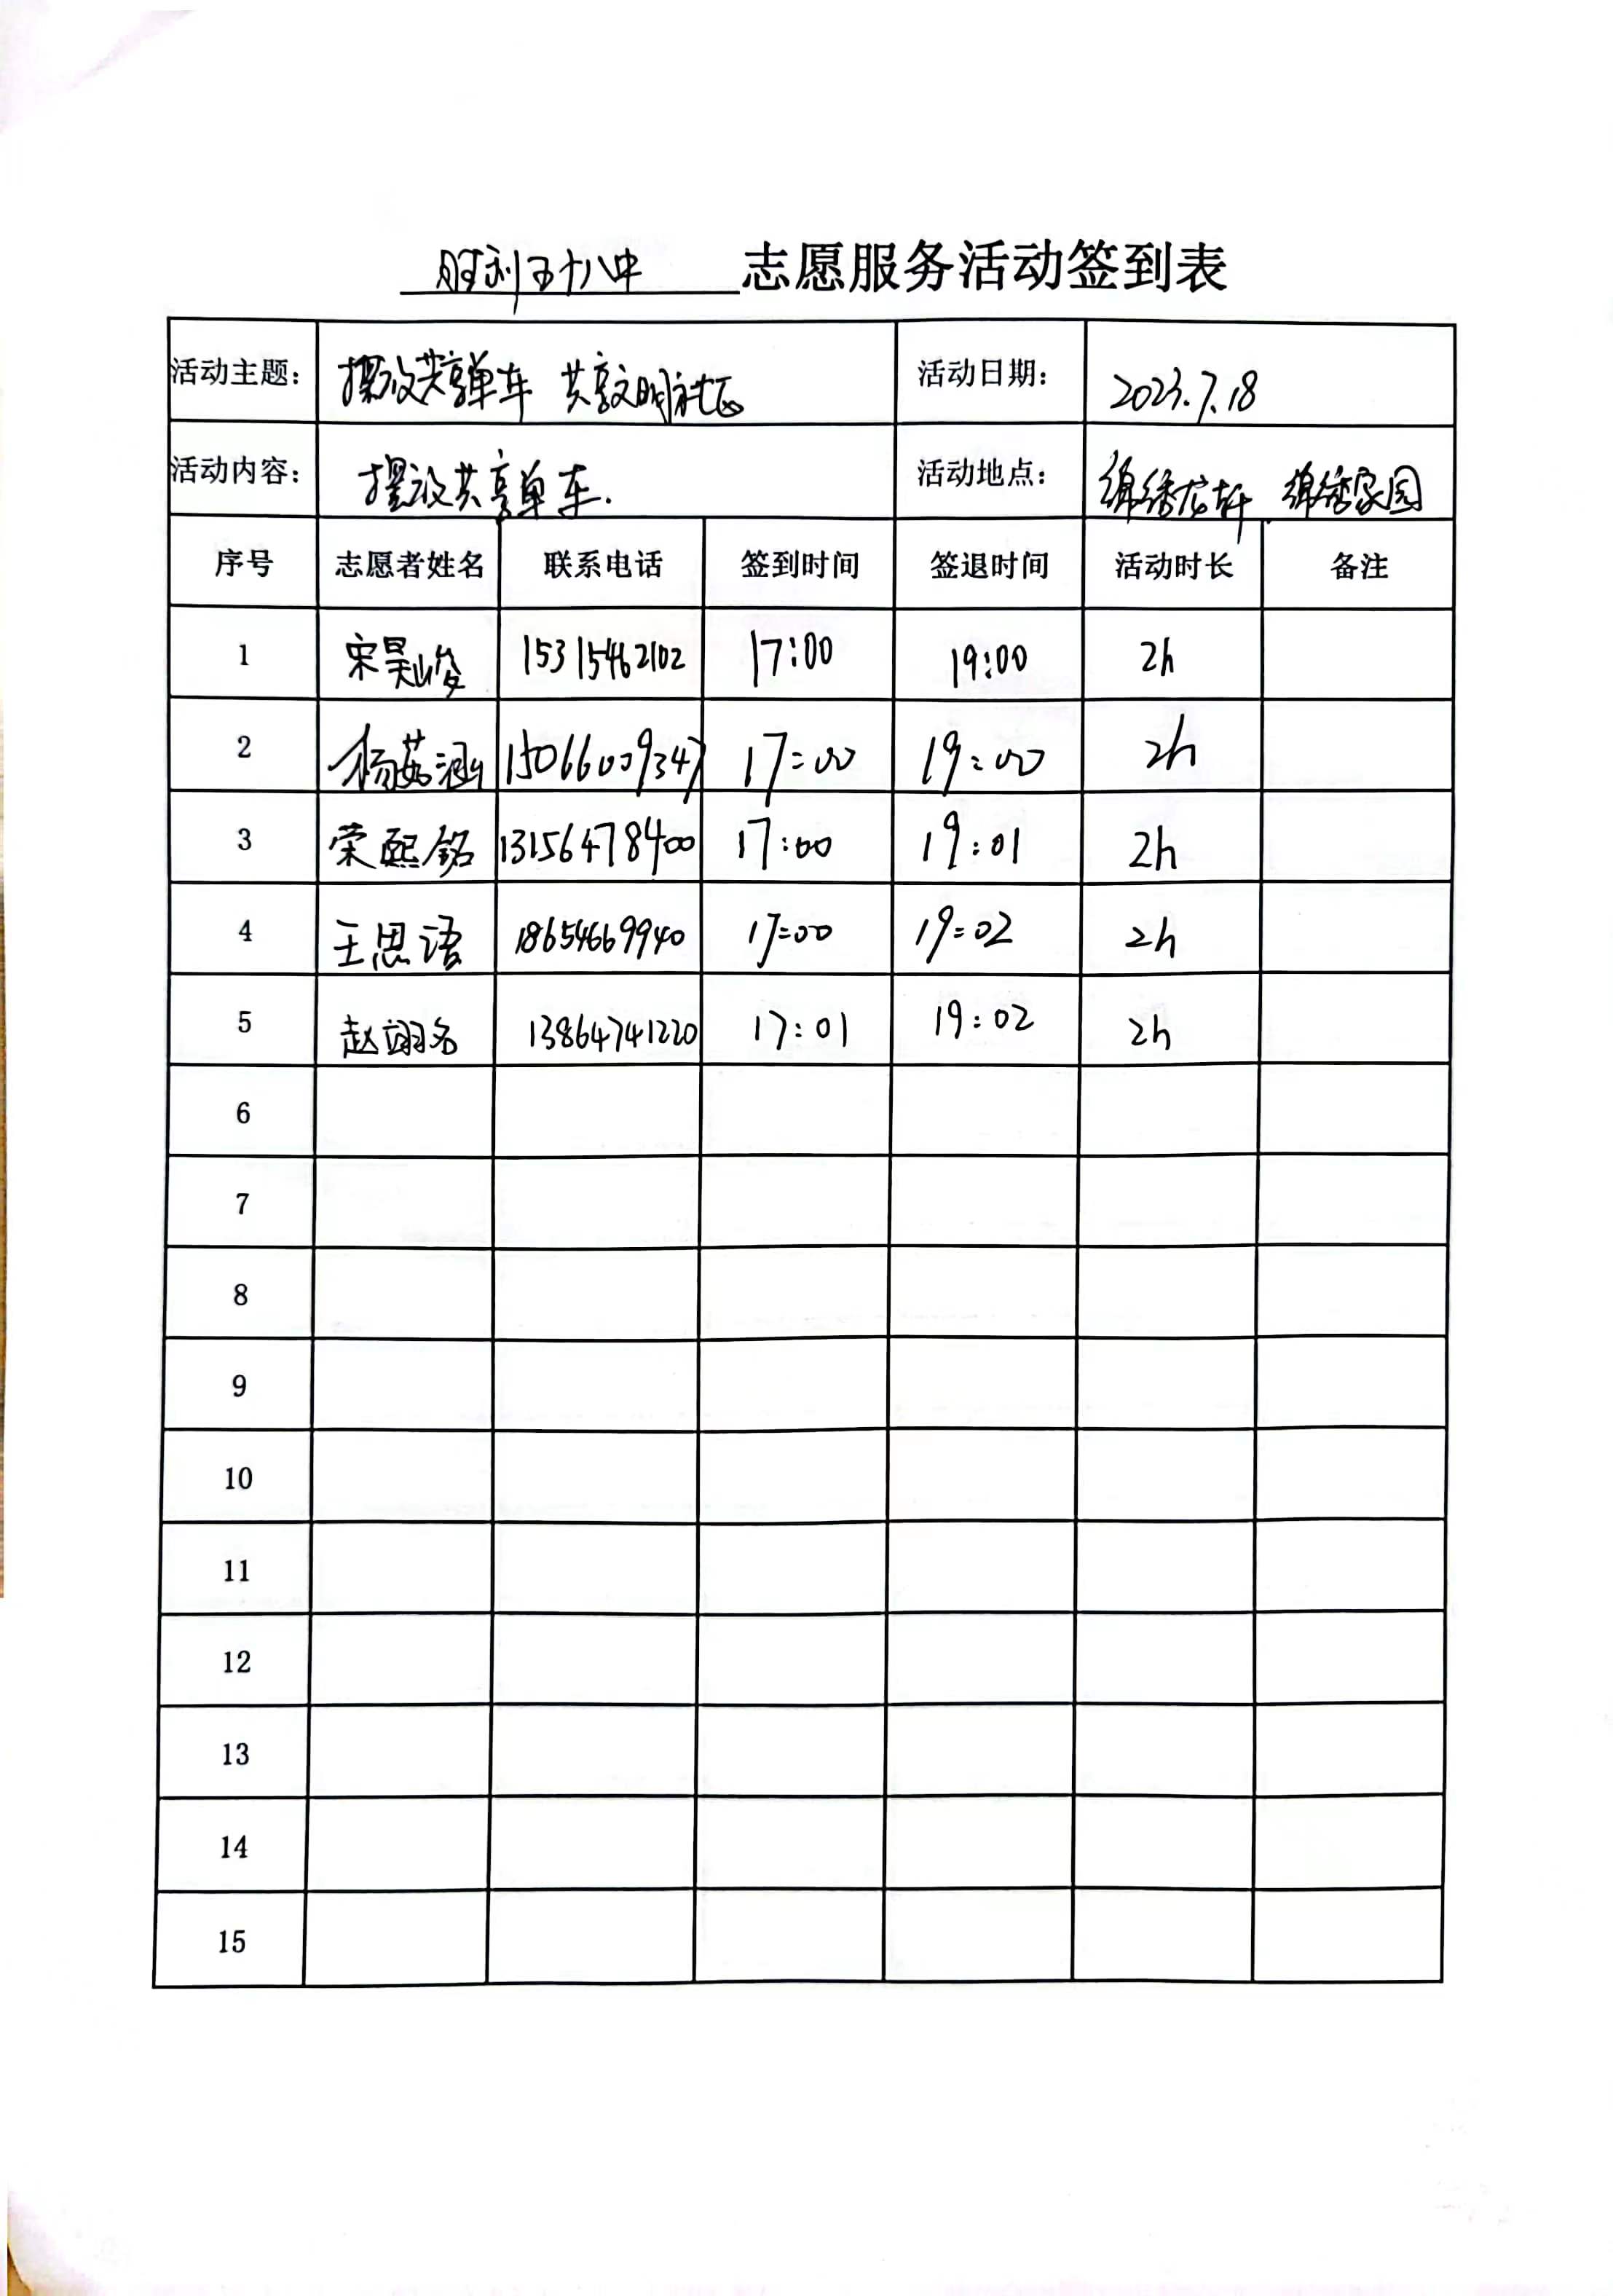 胜利五十八中 志愿服务活动签到表
活动主题： 摆放共享单车 共享文明社区 活动日期： 2023.7.18
活动内容： 摆放共享单车. 活动地点： 锦绣龙轩 锦绣家园
序号 志愿者姓名 联系电话 签到时间 签退时间 活动时长 备注
1 宋昊峻 15315462102 17:00 19:00 2h
2 杨茹涵 15066009347 17:00 19:00 2h
3 荣熙铭 13156478400 17:00 19:01 2h
4 王思语 18654669940 17:00 19:02 2h
5 赵翊名 13864741220 17:01 19:02 2h
6
7
8
9
10
11
12
13
14
15